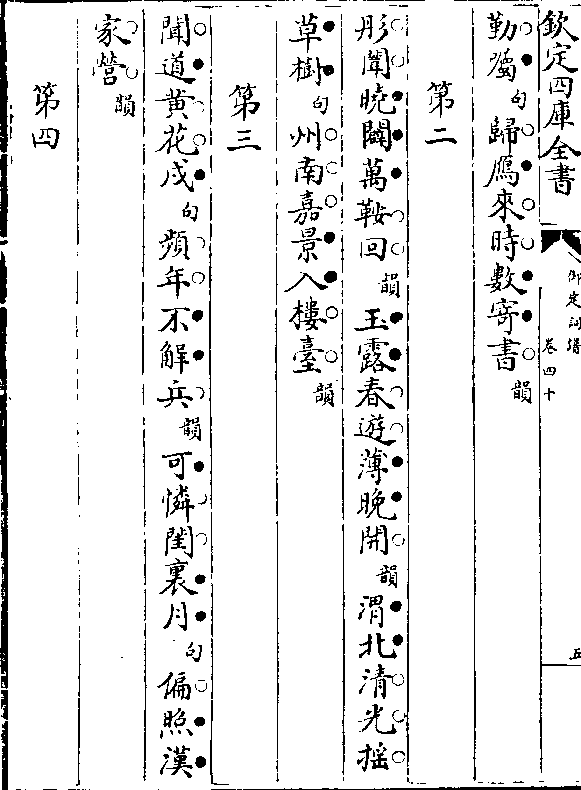 欽定四庫全書
御定詞譜
卷四十
五
勤屬句歸鴈來時數寄書韻
第二
彤闈曉闢萬鞍回韻玉露春遊薄晚開韻渭北清光摇
草樹句州南嘉景入樓臺韻
第三
聞道黄花戍句頻年不解兵韻可憐閨裏月句偏照漢
家營韻
第四